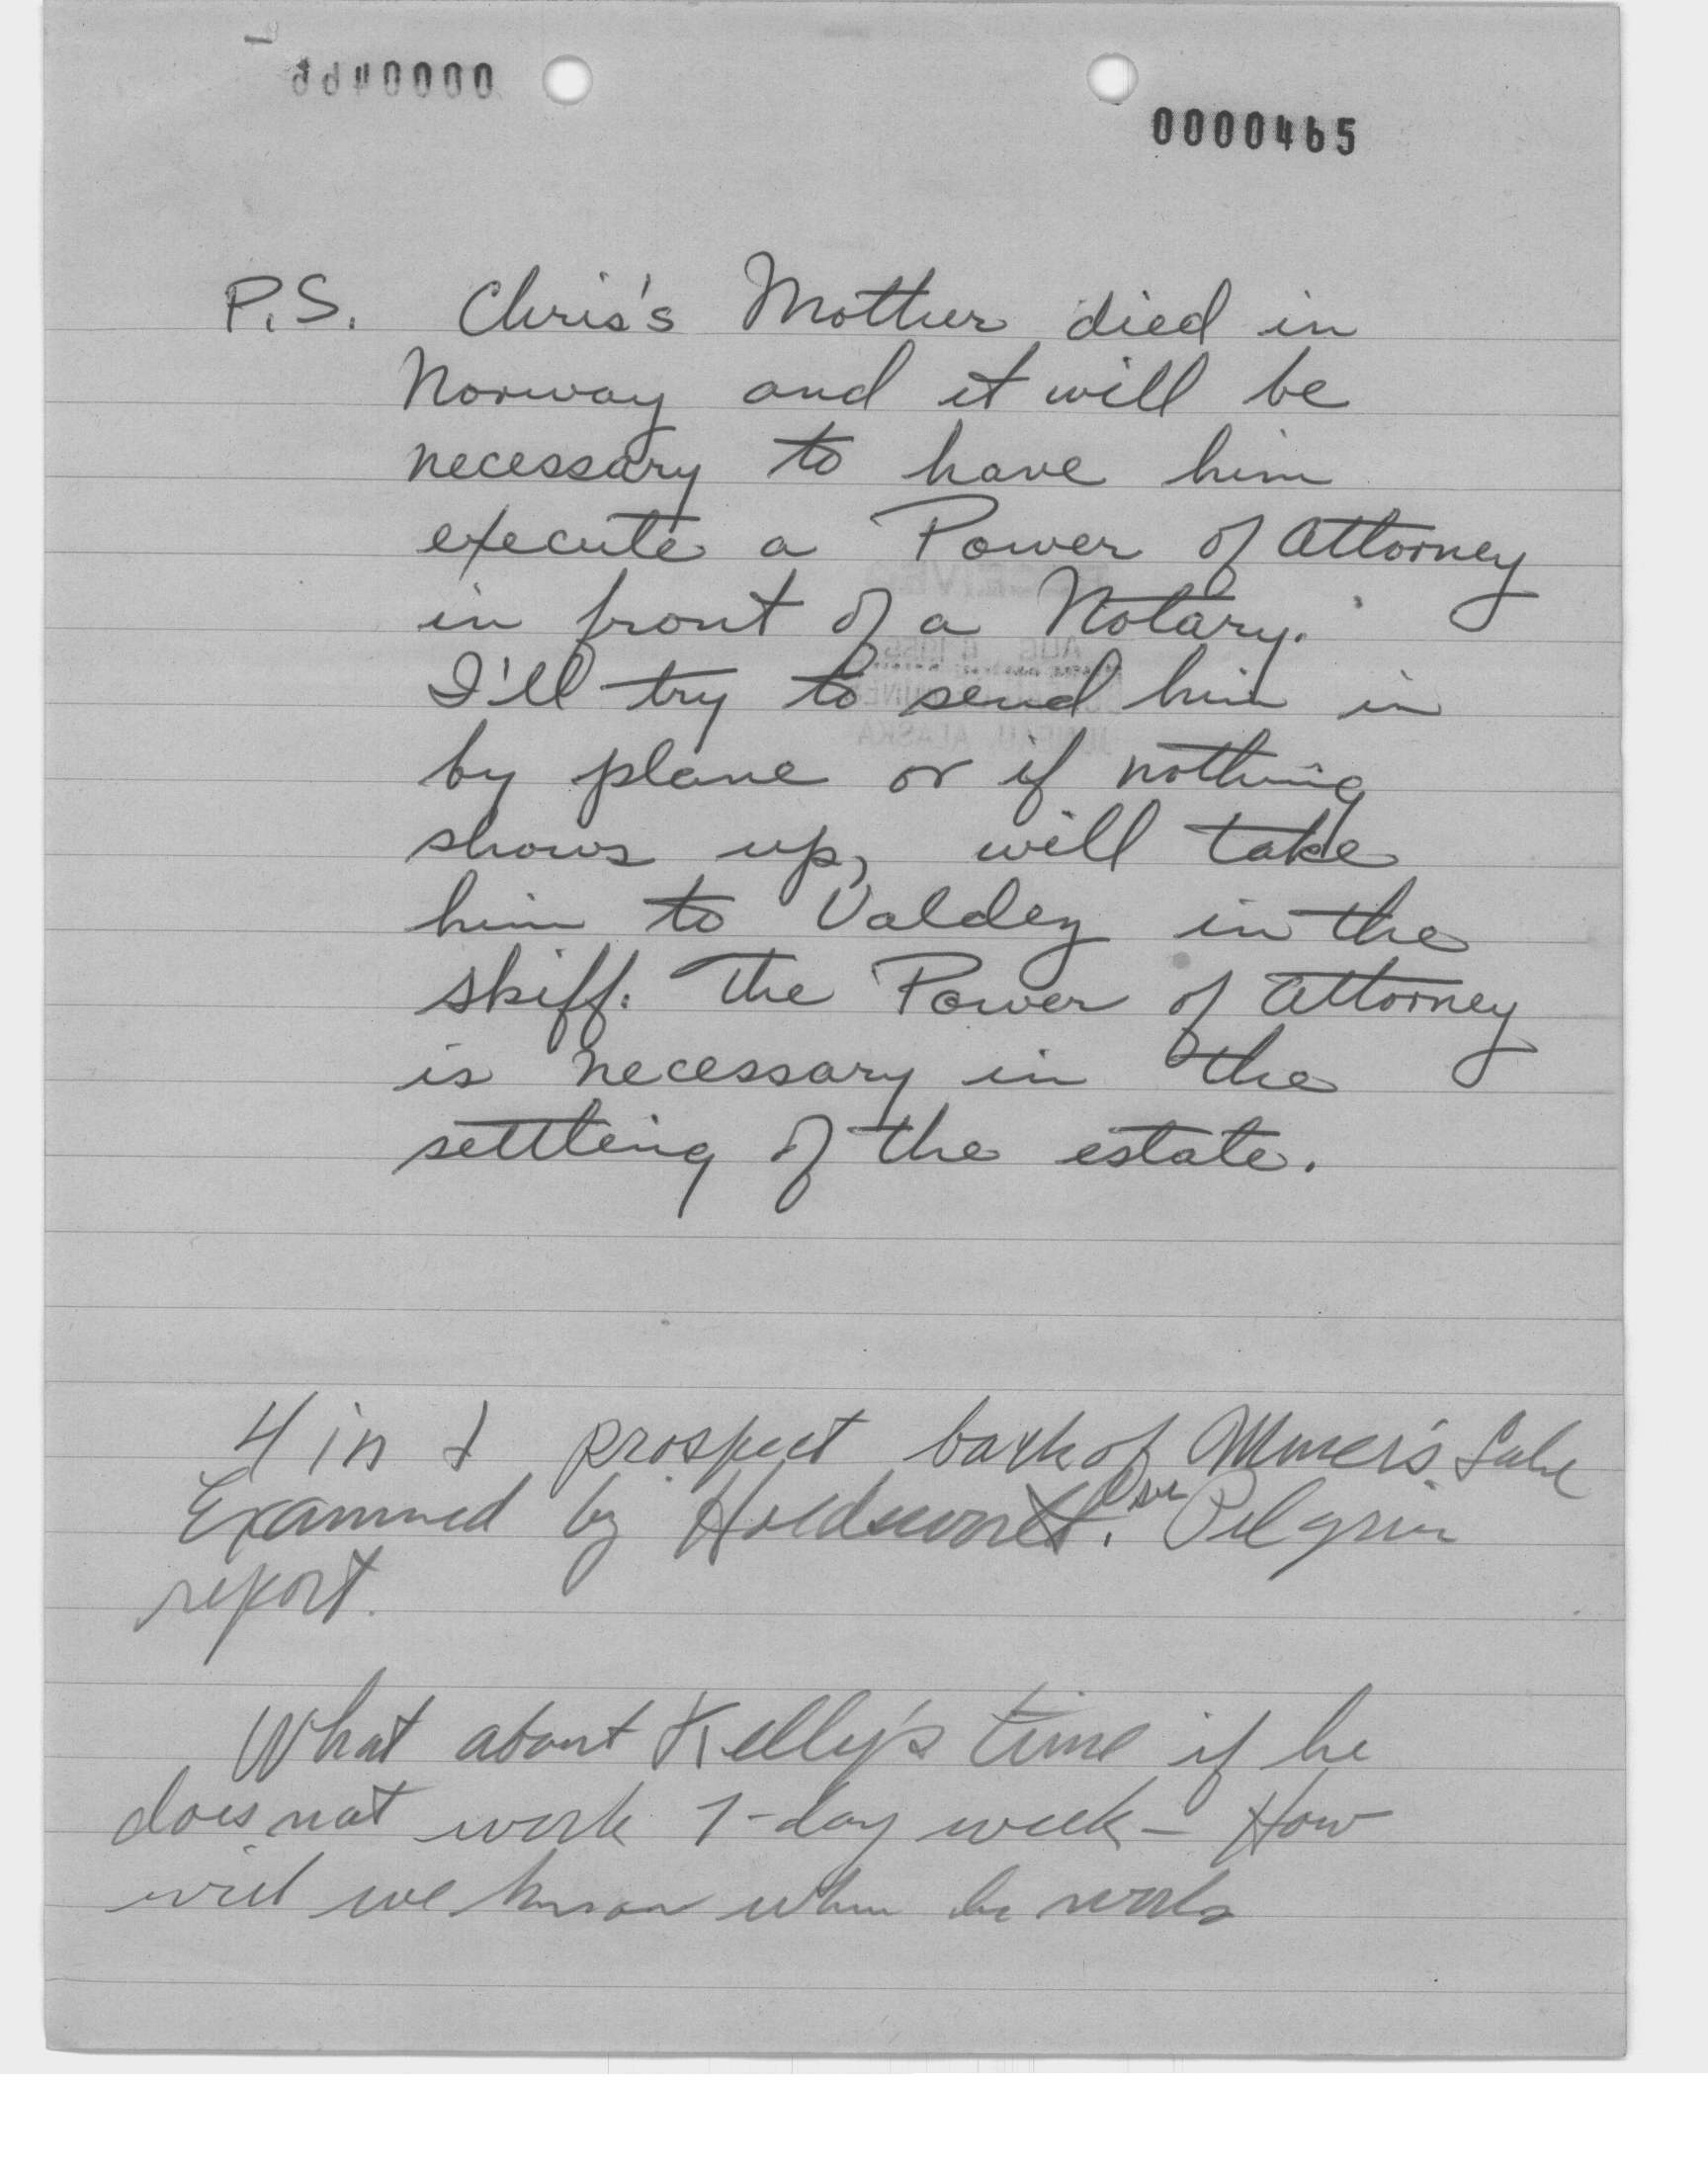 0000465
P.S. Chris's Mother died in
Norway and it will be
necessary to have him
execute a Power of Attorney
in front of a Notary.
I'll try to send him in
by plane or if nothing
shows up, will take
him to Valdez in the
skiff. The Power of Attorney
is necessary in the
settling of the estate.
4 in prospect back of Miner's Lake
Examined by Holdsworth. Pilgrim
report.
What about Kelly's time if he
does not work 7-day week - How
will we know when he works